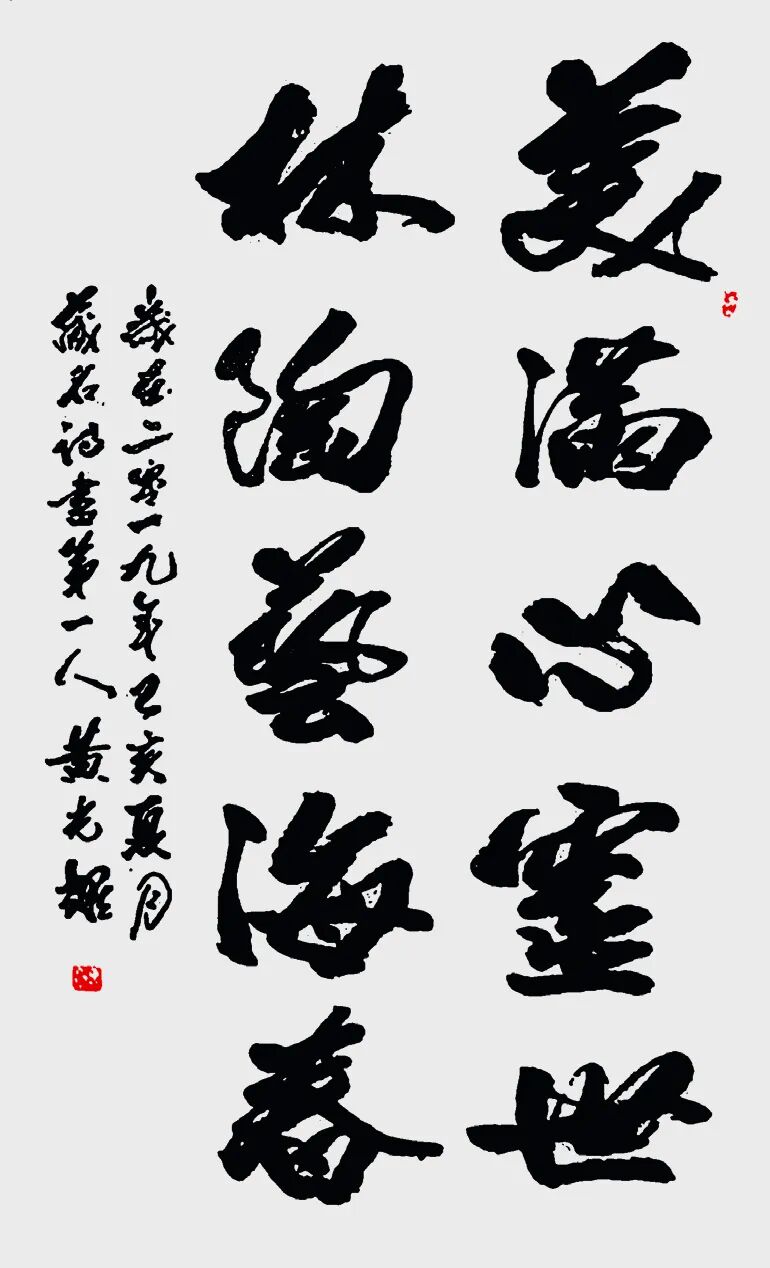 美满心靈世
林陶藝海春
歲在二零一九年己亥夏月
藏名詩書第一人黄光耀